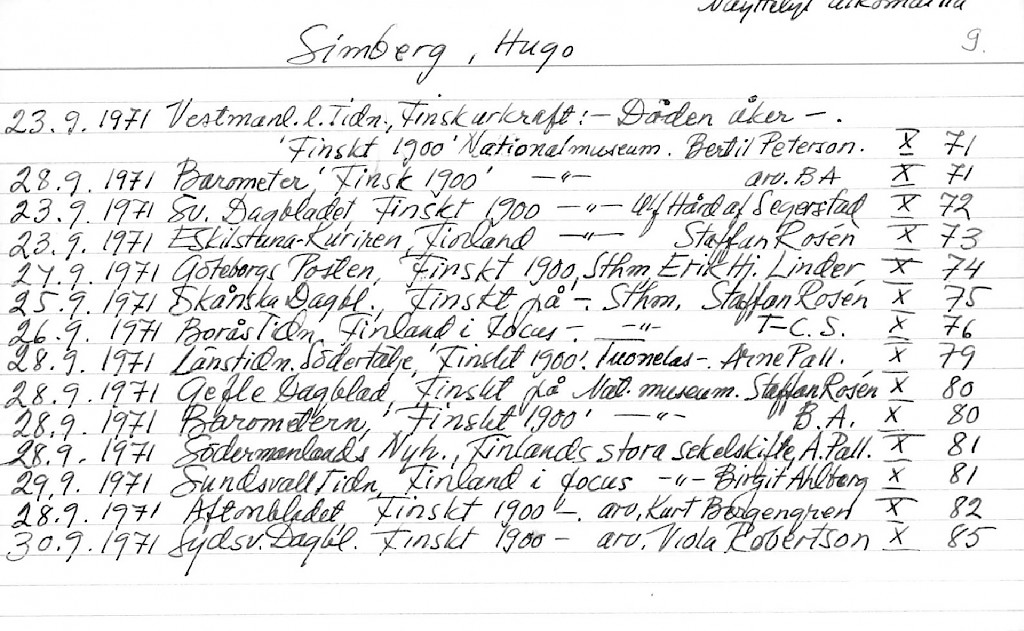 Näyttelyt ulkomailla
9.
Simberg, Hugo
23.9.1971 Vestmanl. l. Tidn., Finsk urkraft:- Döden åker -.
'Finskt 1900' Nationalmuseum. Bertil Peterson. X 71
28.9.1971 Barometer, 'Finsk 1900' -"- arv. B A X 71
23.9.1971 Sv. Dagbladet, Finskt 1900 -"- Ulf Hård af Segerstad X 72
23.9.1971 Eskilstuna-Kuriren, Finland -"- Staffan Rosén X 73
27.9.1971 Göteborgs Posten, Finskt 1900, Sthm, Erik Hj. Linder X 74
25.9.1971 Skånska Dagbl., Finskt på -. Sthm. Staffan Rosén X 75
26.9.1971 Borås Tidn, Finland i focus -. -"- T-C.S. X 76
28.9.1971 Länstidn. Södertälje, 'Finskt 1900'. Tuonelas -. Arne Pall. X 79
28.9.1971 Gefle Dagblad, Finskt på Nat. museum. Staffan Rosén X 80
28.9.1971 Barometern, 'Finskt 1900' -"- B.A. X 80
28.9.1971 Södermanlands Nyh., Finlands stora sekelskifte, A. Pall. X 81
29.9.1971 Sundsvall Tidn, Finland i focus -"- Birgit Ahlberg X 81
28.9.1971 Aftonbladet Finskt 1900 -. arv, Kurt Bergengren X 82
30.9.1971 Sydsv. Dagbl. Finskt 1900 - arv. Viola Robertson X 85